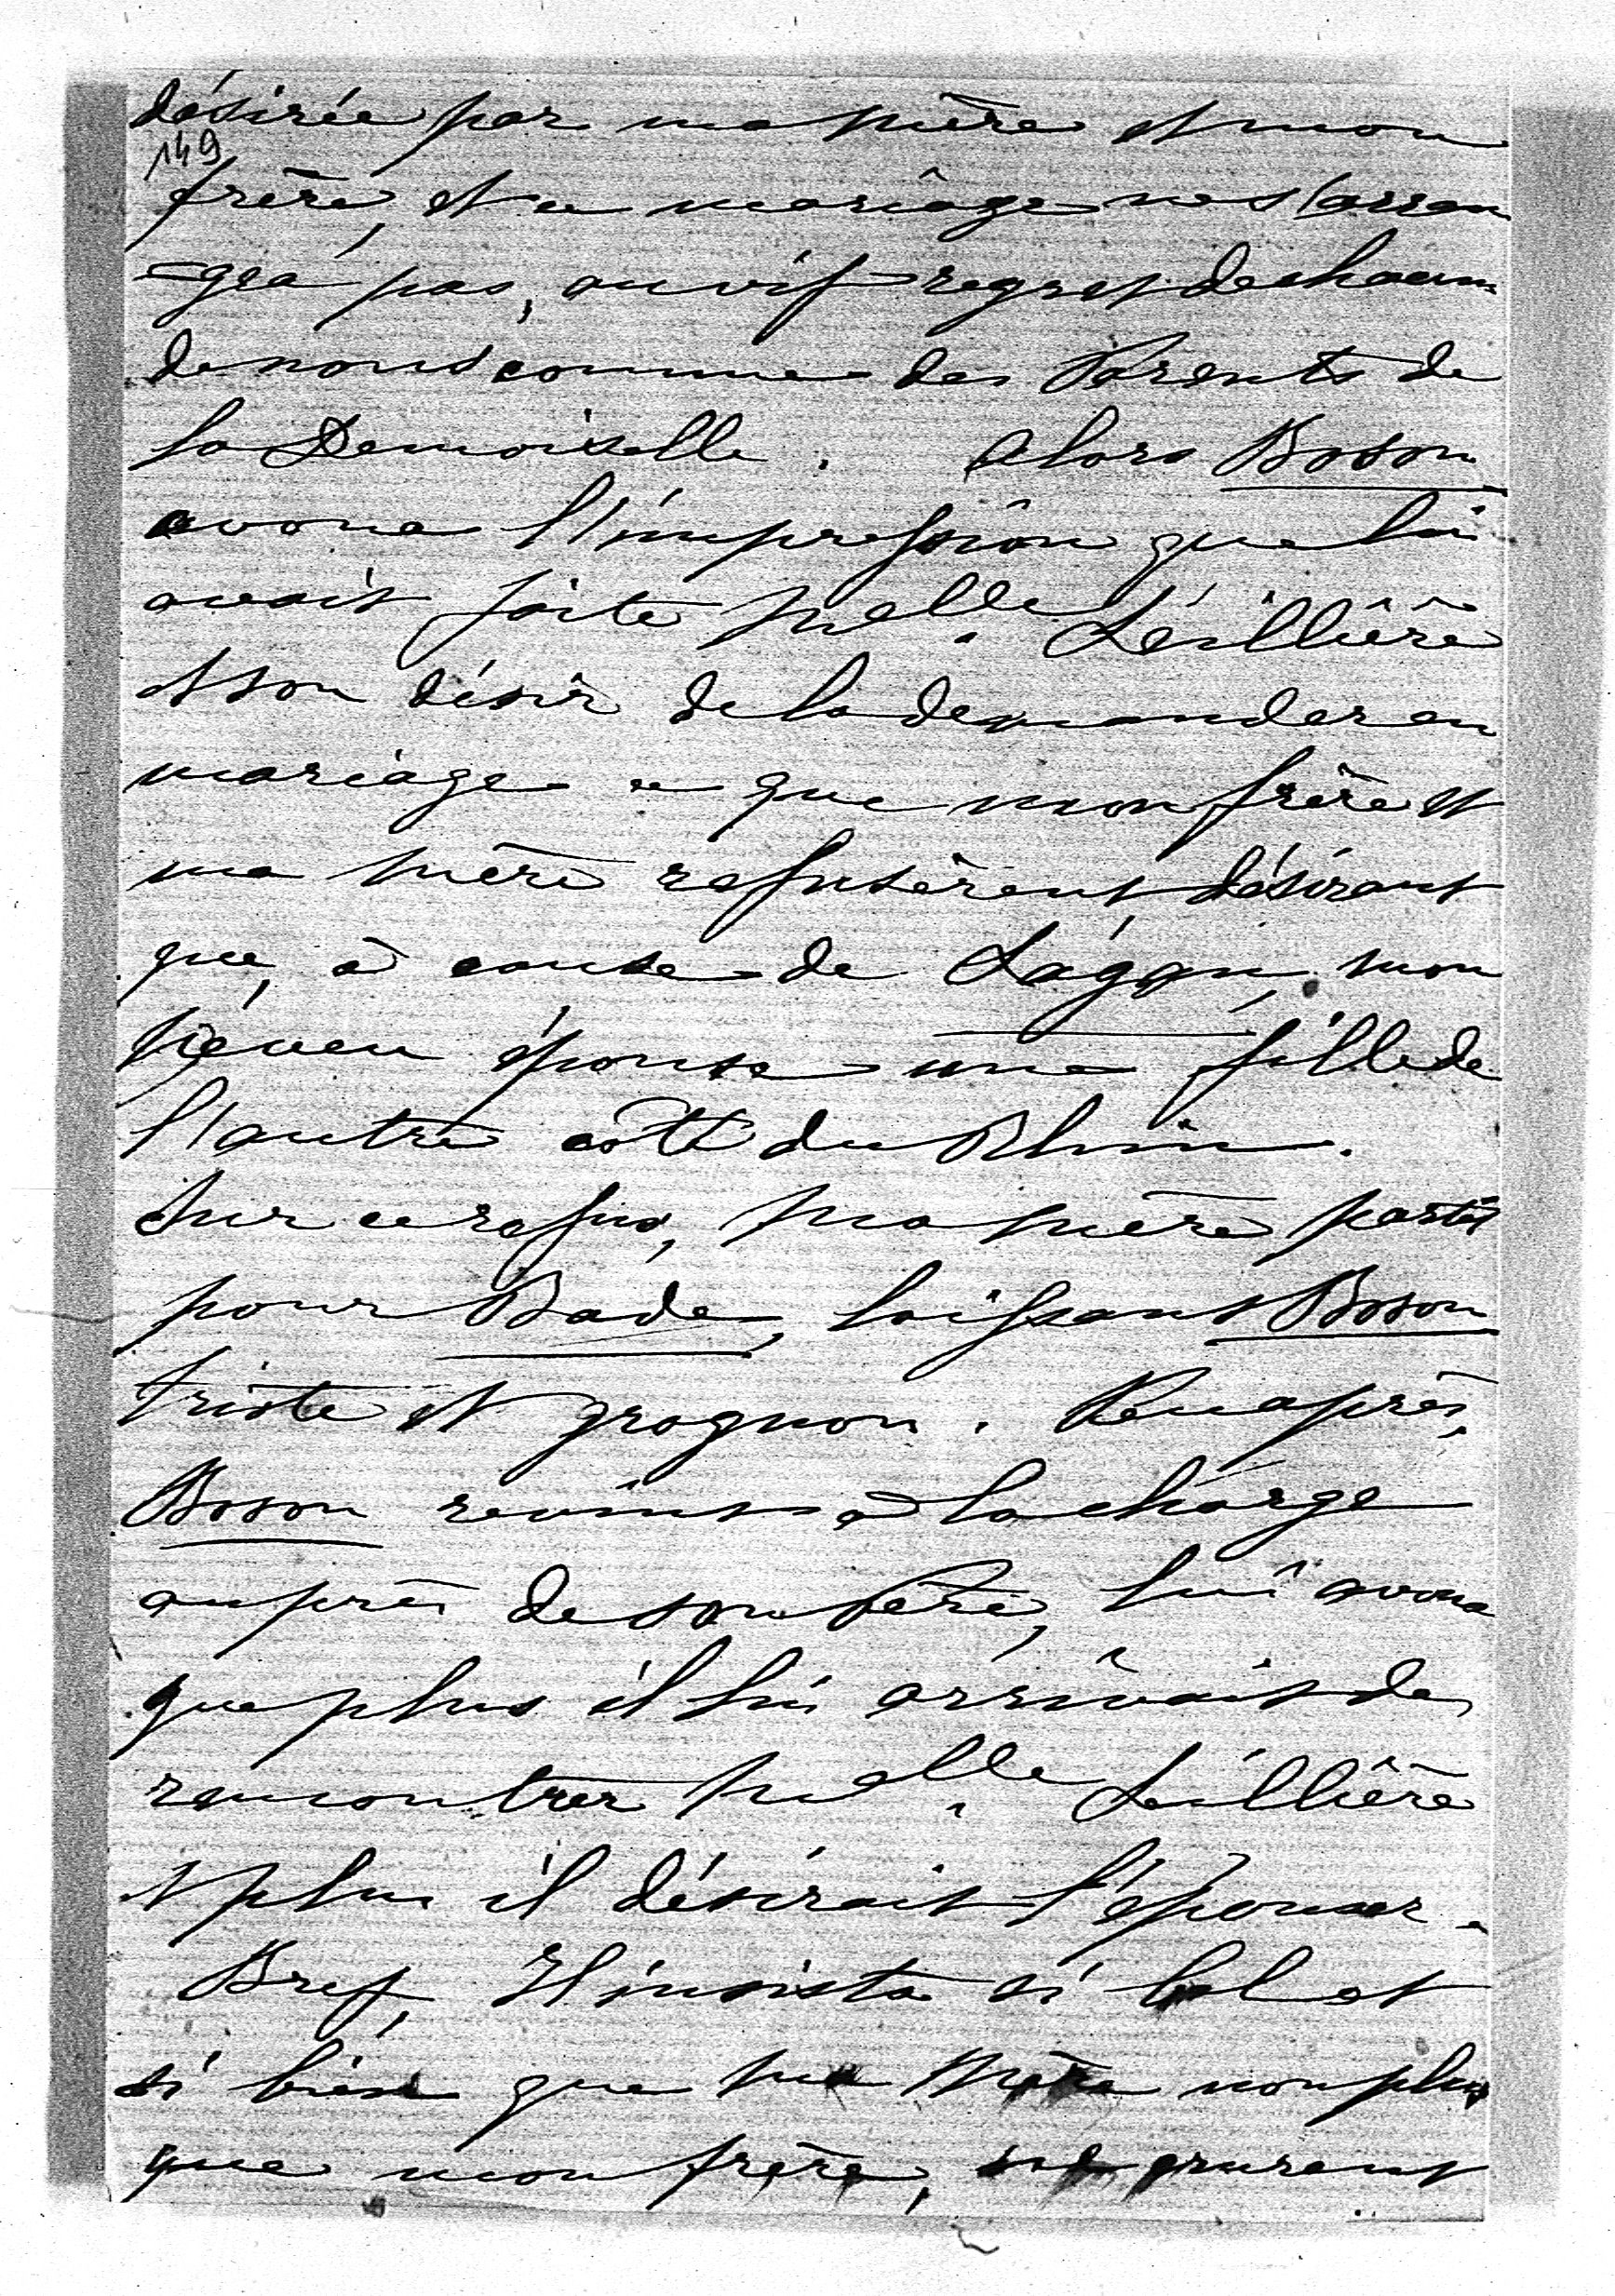 désirée par ma Mère et mon
149
frère, et ce mariage ne s'arran
=gea pas, au vif regret de chacun
de nous comme des Parents de
la Demoiselle. Alors Boson
avoua l'impression que lui
avait faite Melle. Seillière
et son désir de la demander en
mariage ce que mon frère et
ma Mère refusèrent désirant
que, à cause de Sagan, mon
Neveu épousa une fille de
l'autre côté du Rhin.
Sur ce refus, Ma Mère partit
pour Bade, laissant Boson
triste et grognon. Peu après,
Boson revint à la charge
auprès de son Père, lui avoua
que plus il lui arrivait de
rencontrer Melle. Seillière
et plus il désirait l'épouser.
Bref, Il insista si bel et
si bien que Ma Mère non plus
que mon frère, ne crurent